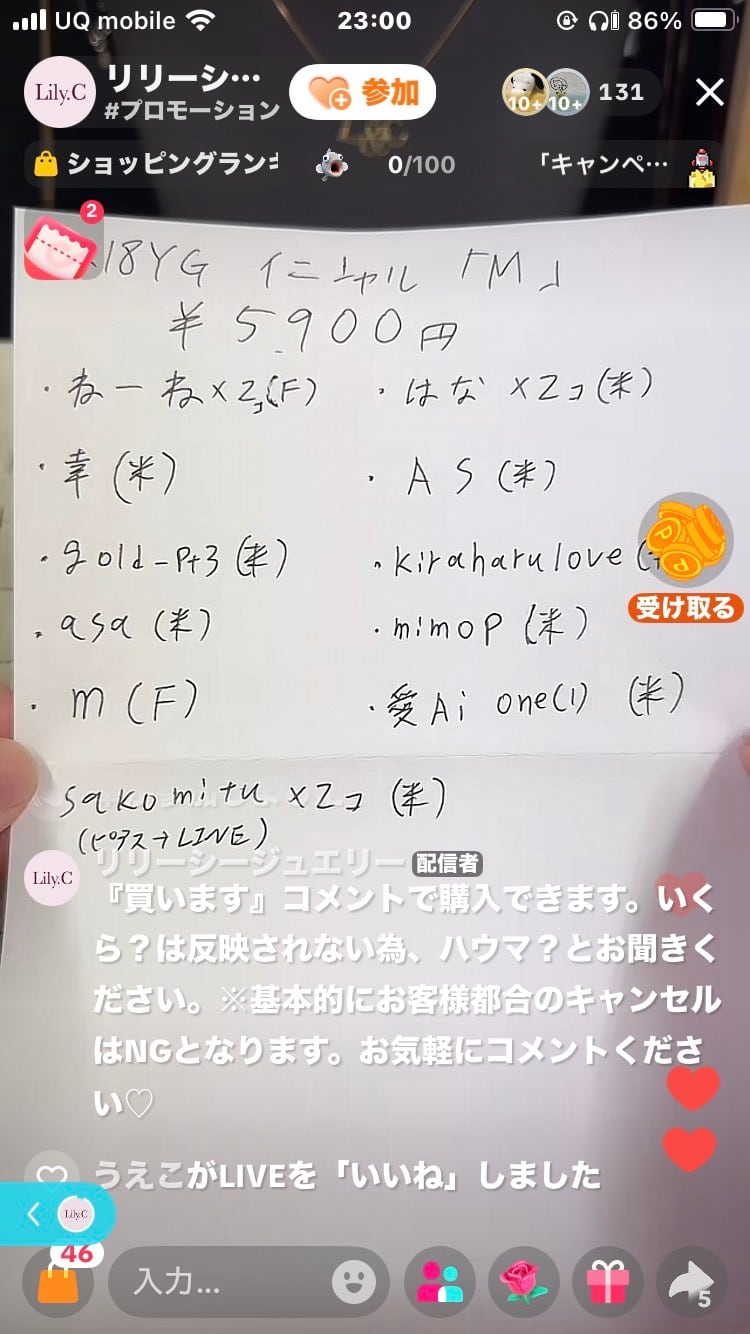 UQ mobile 23:00 86%
Lily.C リリーシ… 参加 10+ 10+ 131
#プロモーション
ショッピングランキ 0/100 「キャンペ…
2
18YG イニシャル 「M」
¥5,900円
・ねーね×2コ(F) ・はな×2コ(米)
・幸(米) ・AS(米)
・gold-pt3(米) ・kiraharulove(
受け取る
・asa(米) ・mimop(米)
・m(F) ・愛Ai one(1) (米)
sakomitu×2コ(米)
(ピアス→LINE)
Lily.C リリーシージュエリー 配信者
『買います』コメントで購入できます。いく
ら?は反映されない為、ハウマ?とお聞きく
ださい。※基本的にお客様都合のキャンセル
はNGとなります。お気軽にコメントくださ
い♡
うえこがLIVEを「いいね」しました
Lily.C
46 入力... 5